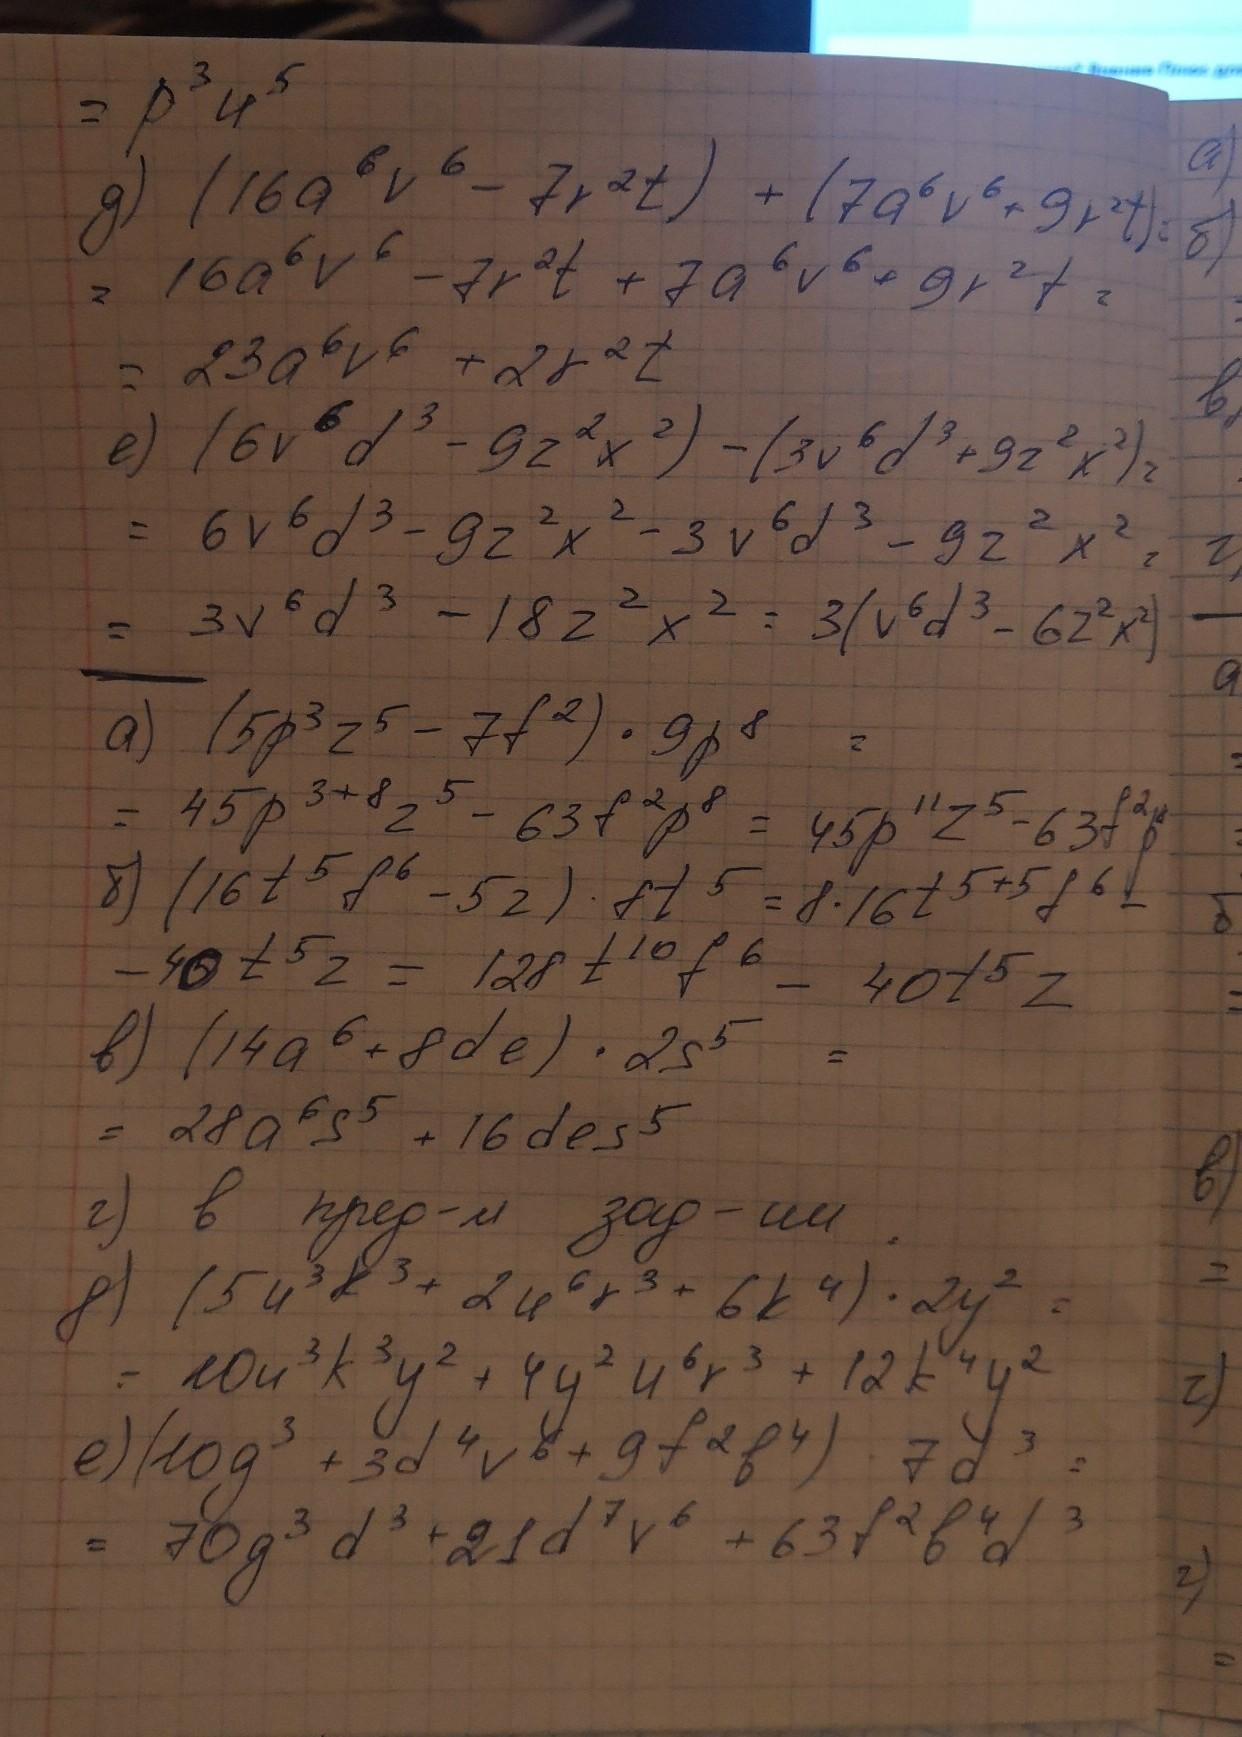 = p³u⁵
д) (16a⁶v⁶ - 7r²t) + (7a⁶v⁶ + 9r²t) =
= 16a⁶v⁶ - 7r²t + 7a⁶v⁶ + 9r²t =
= 23a⁶v⁶ + 2r²t
е) (6v⁶d³ - 9z²x²) - (3v⁶d³ + 9z²x²) =
= 6v⁶d³ - 9z²x² - 3v⁶d³ - 9z²x² =
= 3v⁶d³ - 18z²x² = 3(v⁶d³ - 6z²x²)
а) (5p³z⁵ - 7f²) · 9p⁸ =
= 45p³⁺⁸z⁵ - 63f²p⁸ = 45p¹¹z⁵ - 63f²p⁸
б) (16t⁵f⁶ - 5z) · 8t⁵ = 8·16t⁵⁺⁵f⁶ -
- 40t⁵z = 128t¹⁰f⁶ - 40t⁵z
в) (14a⁶ + 8de) · 2s⁵ =
= 28a⁶s⁵ + 16des⁵
г) в пред-м зад-ии.
д) (5u³k³ + 2u⁶r³ + 6k⁴) · 2y² =
= 10u³k³y² + 4y²u⁶r³ + 12k⁴y²
е) (10g³ + 3d⁴v⁶ + 9f²b⁴) · 7d³ =
= 70g³d³ + 21d⁷v⁶ + 63f²b⁴d³
а)
б)
в)
г)
а
=
б
=
в)
=
г)
г)
=